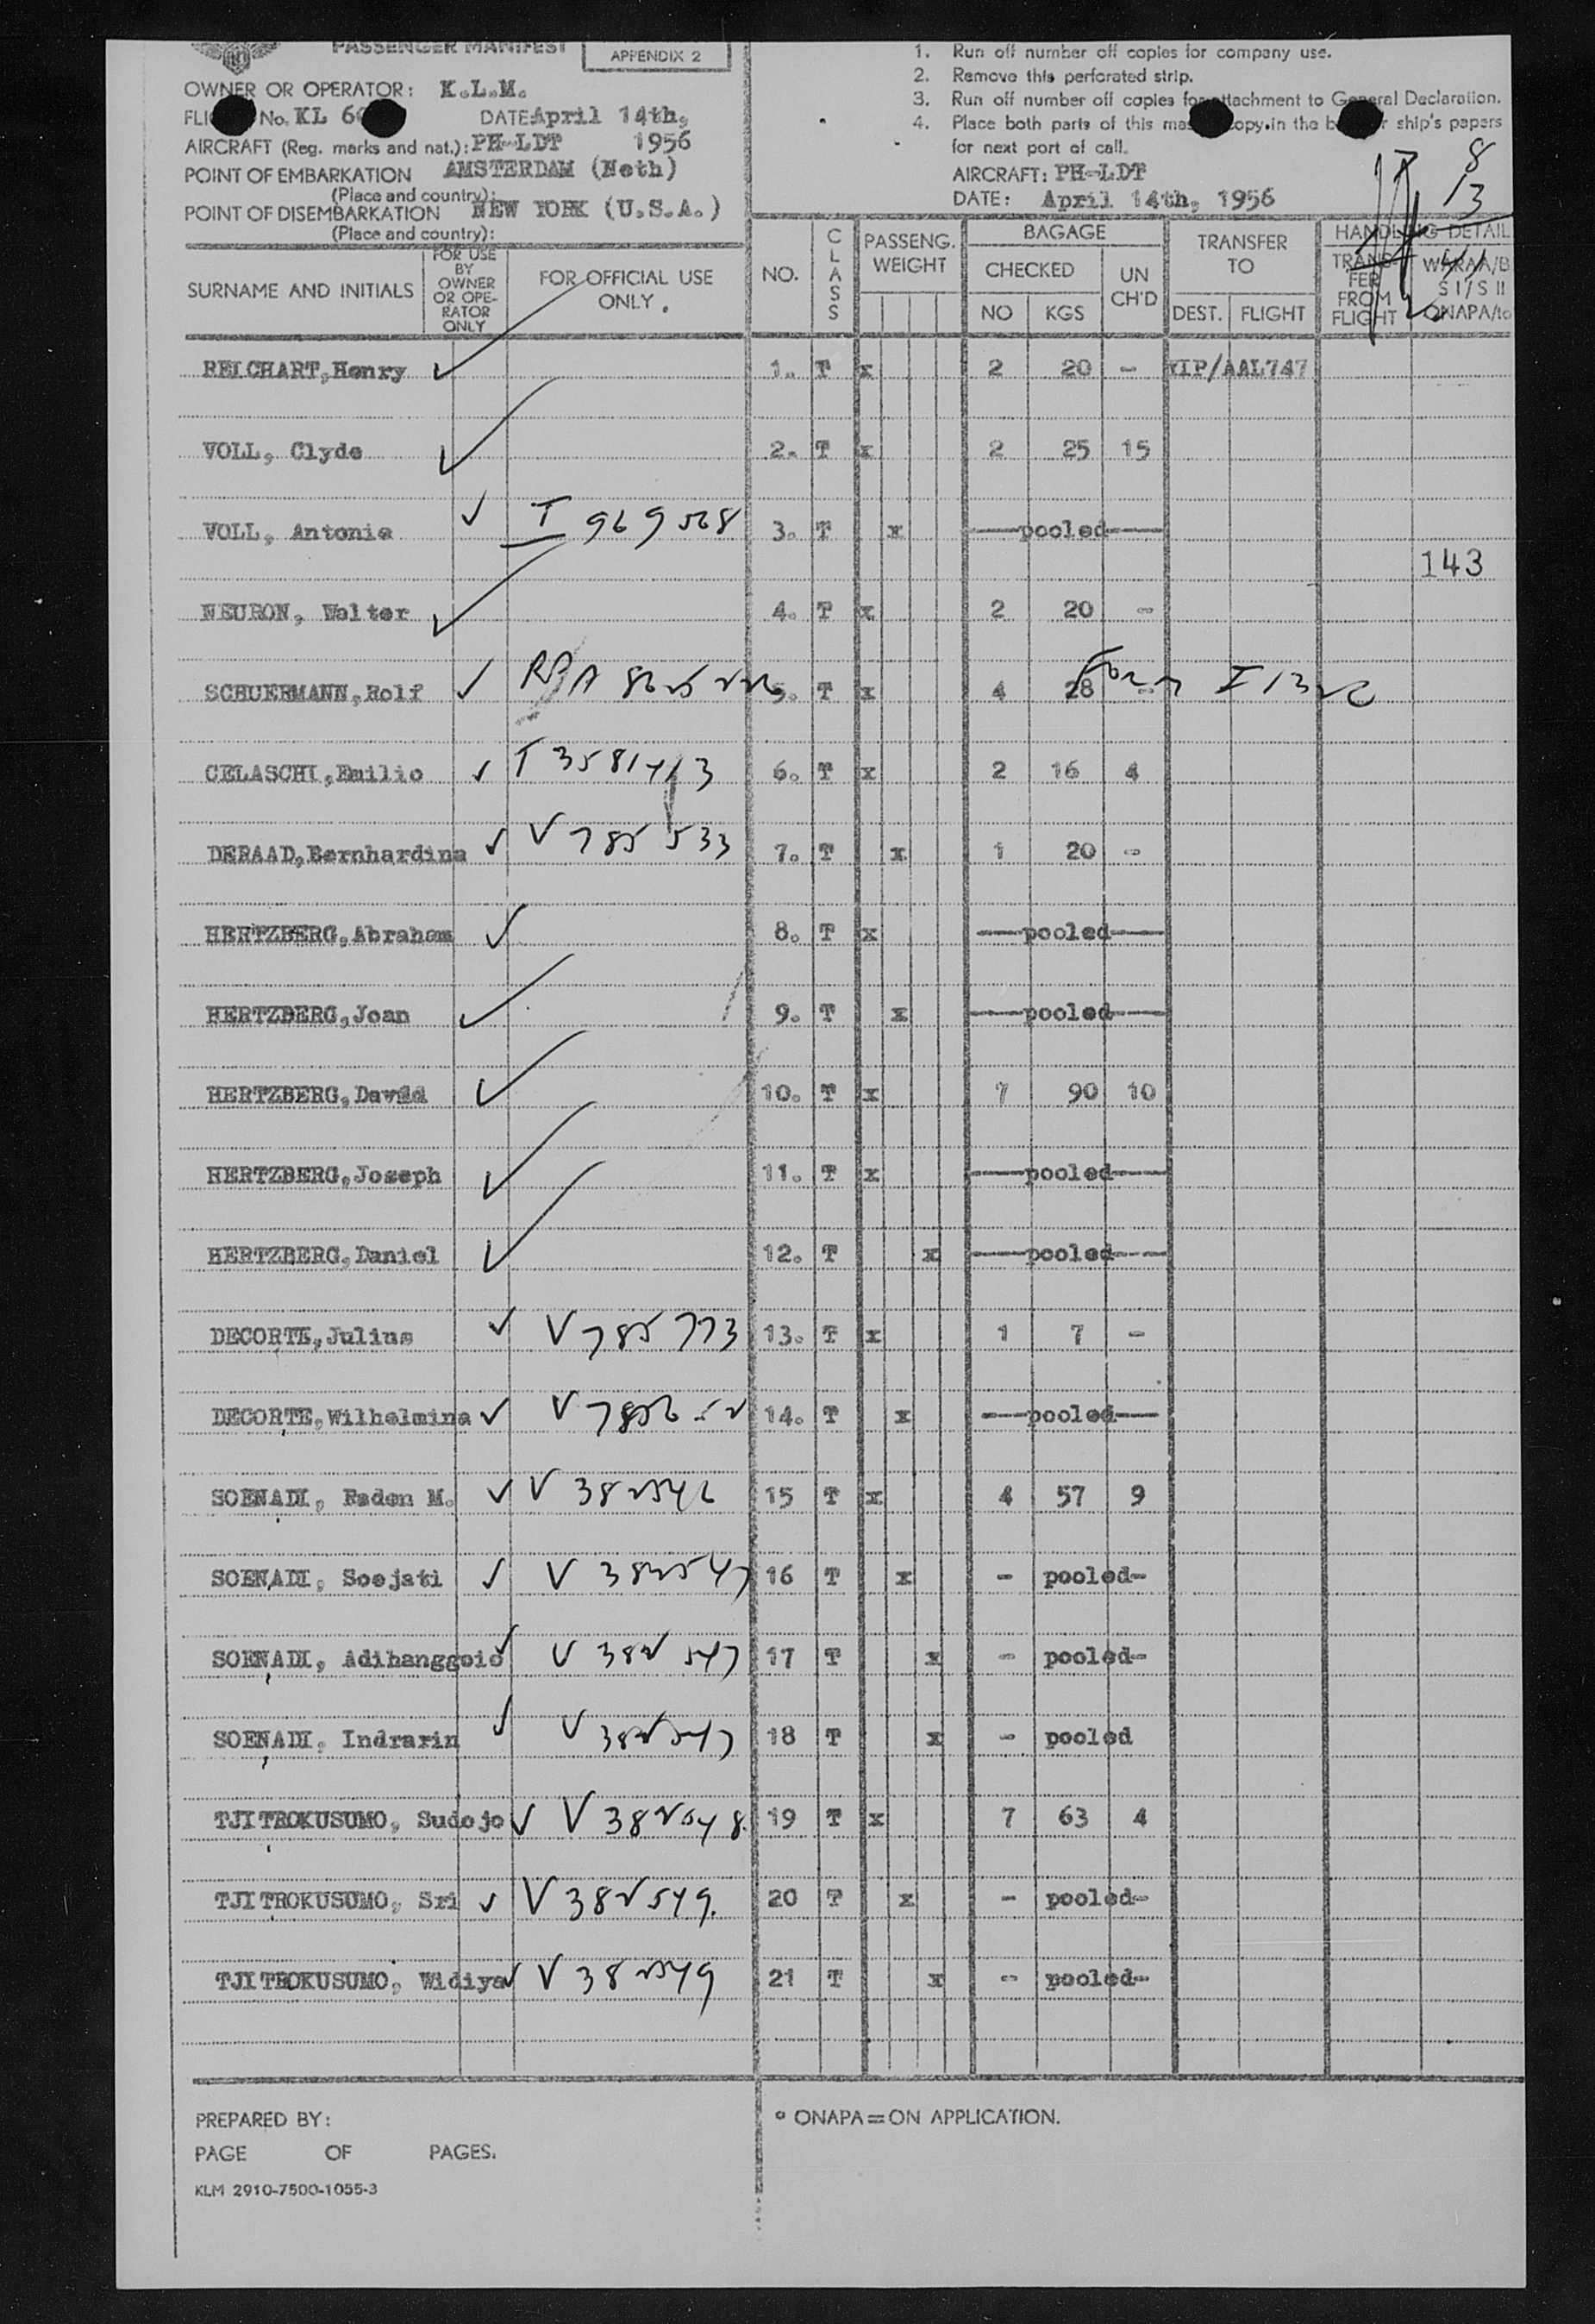 PASSENGER MANIFEST
APPENDIX 2
OWNER OR OPERATOR: K.L.M.
No. KL 6 DATE: April 14th,
AIRCRAFT (Reg. marks and nat.): PH-LDT 1956
POINT OF EMBARKATION AMSTERDAM (Neth)
(Place and country):
POINT OF DISEMBARKATION NEW YORK (U.S.A.)
(Place and country):
1. Run off number off copies for company use.
2. Remove this perforated strip.
3. Run off number off copies for attachment to General Declaration.
4. Place both parts of this copy in the ship's papers
for next port of call.
AIRCRAFT: PH-LDT
DATE: April 14th, 1956
8
13
SURNAME AND INITIALS
FOR USE BY OWNER OR OPERATOR ONLY
FOR OFFICIAL USE ONLY.
NO.
CLASS
PASSENG. WEIGHT
BAGAGE
CHECKED
NO KGS
UN CH'D
TRANSFER TO
DEST. FLIGHT
HANDLING DETAIL
TRANSFER FROM FLIGHT
S I/S II
ONAPA/to
REICHART, Henry 1. T x 2 20 - /AAL747
VOLL, Clyde 2. T x 2 25 15
VOLL, Antonia T 969568 3. T x pooled
143
NEURON, Walter 4. T x 2 20 -
SCHUERMANN, Rolf 5. T x 4 28 - Form I
CELASCHI, Emilio T 3581413 6. T x 2 16 4
DERAAD, Bernhardina V 785533 7. T x 1 20 -
HERTZBERG, Abraham 8. T x pooled
HERTZBERG, Joan 9. T x pooled
HERTZBERG, David 10. T x 7 90 10
HERTZBERG, Joseph 11. T x pooled
HERTZBERG, Daniel 12. T x pooled
DECORTE, Julius V 785773 13. T x 1 7 -
DECORTE, Wilhelmina 14. T x pooled
SOENADI, Raden M. V 382546 15 T x 4 57 9
SOENADI, Soejati V 382547 16 T x - pooled-
SOENADI, Adihanggoio V 382547 17 T x - pooled-
SOENADI, Indrarin V 382547 18 T x - pooled
TJITROKUSUMO, Sudojo V 382548. 19 T x 7 63 4
TJITROKUSUMO, Sri V 382549. 20 T x - pooled-
TJITROKUSUMO, Widiya V 382549 21 T x - pooled-
PREPARED BY:
° ONAPA = ON APPLICATION.
PAGE OF PAGES.
KLM 2910-7500-1055-3